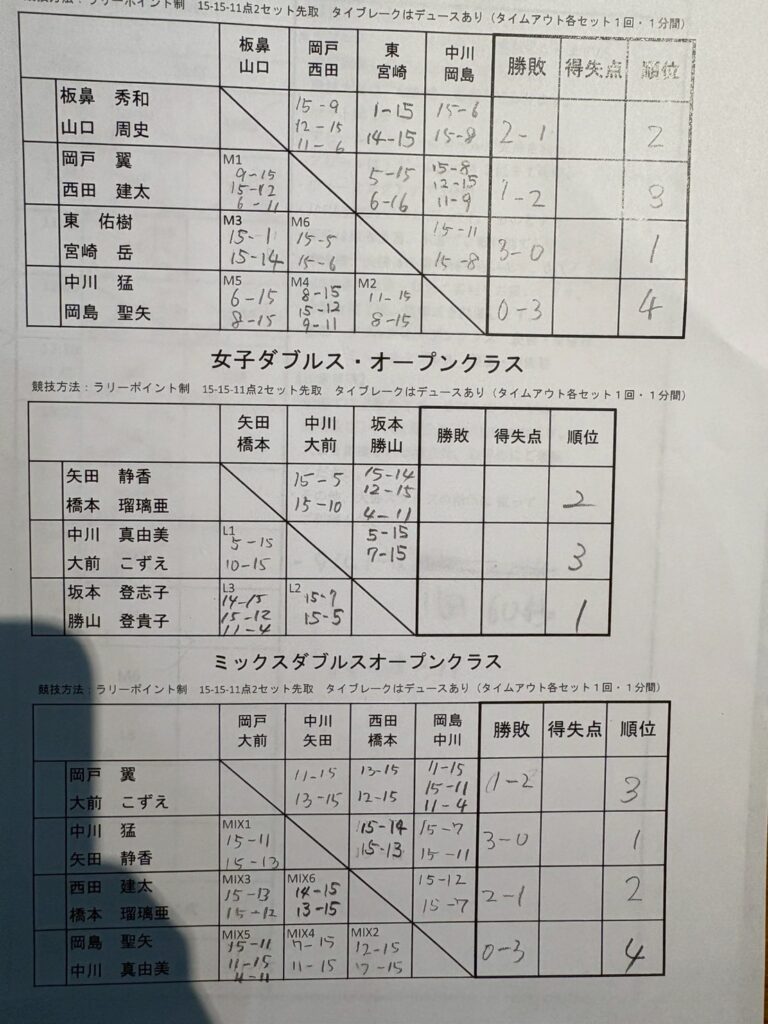 競技方法：ラリーポイント制　15-15-11点2セット先取　タイブレークはデュースあり（タイムアウト各セット1回・1分間）
板鼻 岡戸 東 中川
山口 西田 宮崎 岡島 勝敗 得失点 順位
板鼻　秀和 15-9 1-15 15-6
山口　周史 12-15 14-15 15-8 2-1 2
11-6
岡戸　翼 M1 9-15 5-15 15-8
西田　建太 15-12 6-16 12-15 1-2 3
6-11 11-9
東　佑樹 M3 15-1 M6 15-5 15-11
宮崎　岳 15-14 15-6 15-8 3-0 1
中川　猛 M5 6-15 M4 8-15 M2 11-15
岡島　聖矢 8-15 15-12 8-15 0-3 4
9-11
女子ダブルス・オープンクラス
競技方法：ラリーポイント制　15-15-11点2セット先取　タイブレークはデュースあり（タイムアウト各セット1回・1分間）
矢田 中川 坂本
橋本 大前 勝山 勝敗 得失点 順位
矢田　静香 15-5 15-14
橋本　瑠璃亜 15-10 12-15 2
4-11
中川　真由美 L1 5-15 5-15
大前　こずえ 10-15 7-15 3
坂本　登志子 L3 14-15 L2 15-7
勝山　登貴子 15-12 15-5 1
11-4
ミックスダブルスオープンクラス
競技方法：ラリーポイント制　15-15-11点2セット先取　タイブレークはデュースあり（タイムアウト各セット1回・1分間）
岡戸 中川 西田 岡島
大前 矢田 橋本 中川 勝敗 得失点 順位
岡戸　翼 11-15 13-15 11-15
大前　こずえ 13-15 12-15 15-11 1-2 3
11-4
中川　猛 MIX1 15-11 15-14 15-7
矢田　静香 15-13 15-13 15-11 3-0 1
西田　建太 MIX3 15-13 MIX6 14-15 15-12
橋本　瑠璃亜 15-12 13-15 15-7 2-1 2
岡島　聖矢 MIX5 15-11 MIX4 7-15 MIX2 12-15
中川　真由美 11-15 11-15 7-15 0-3 4
4-11